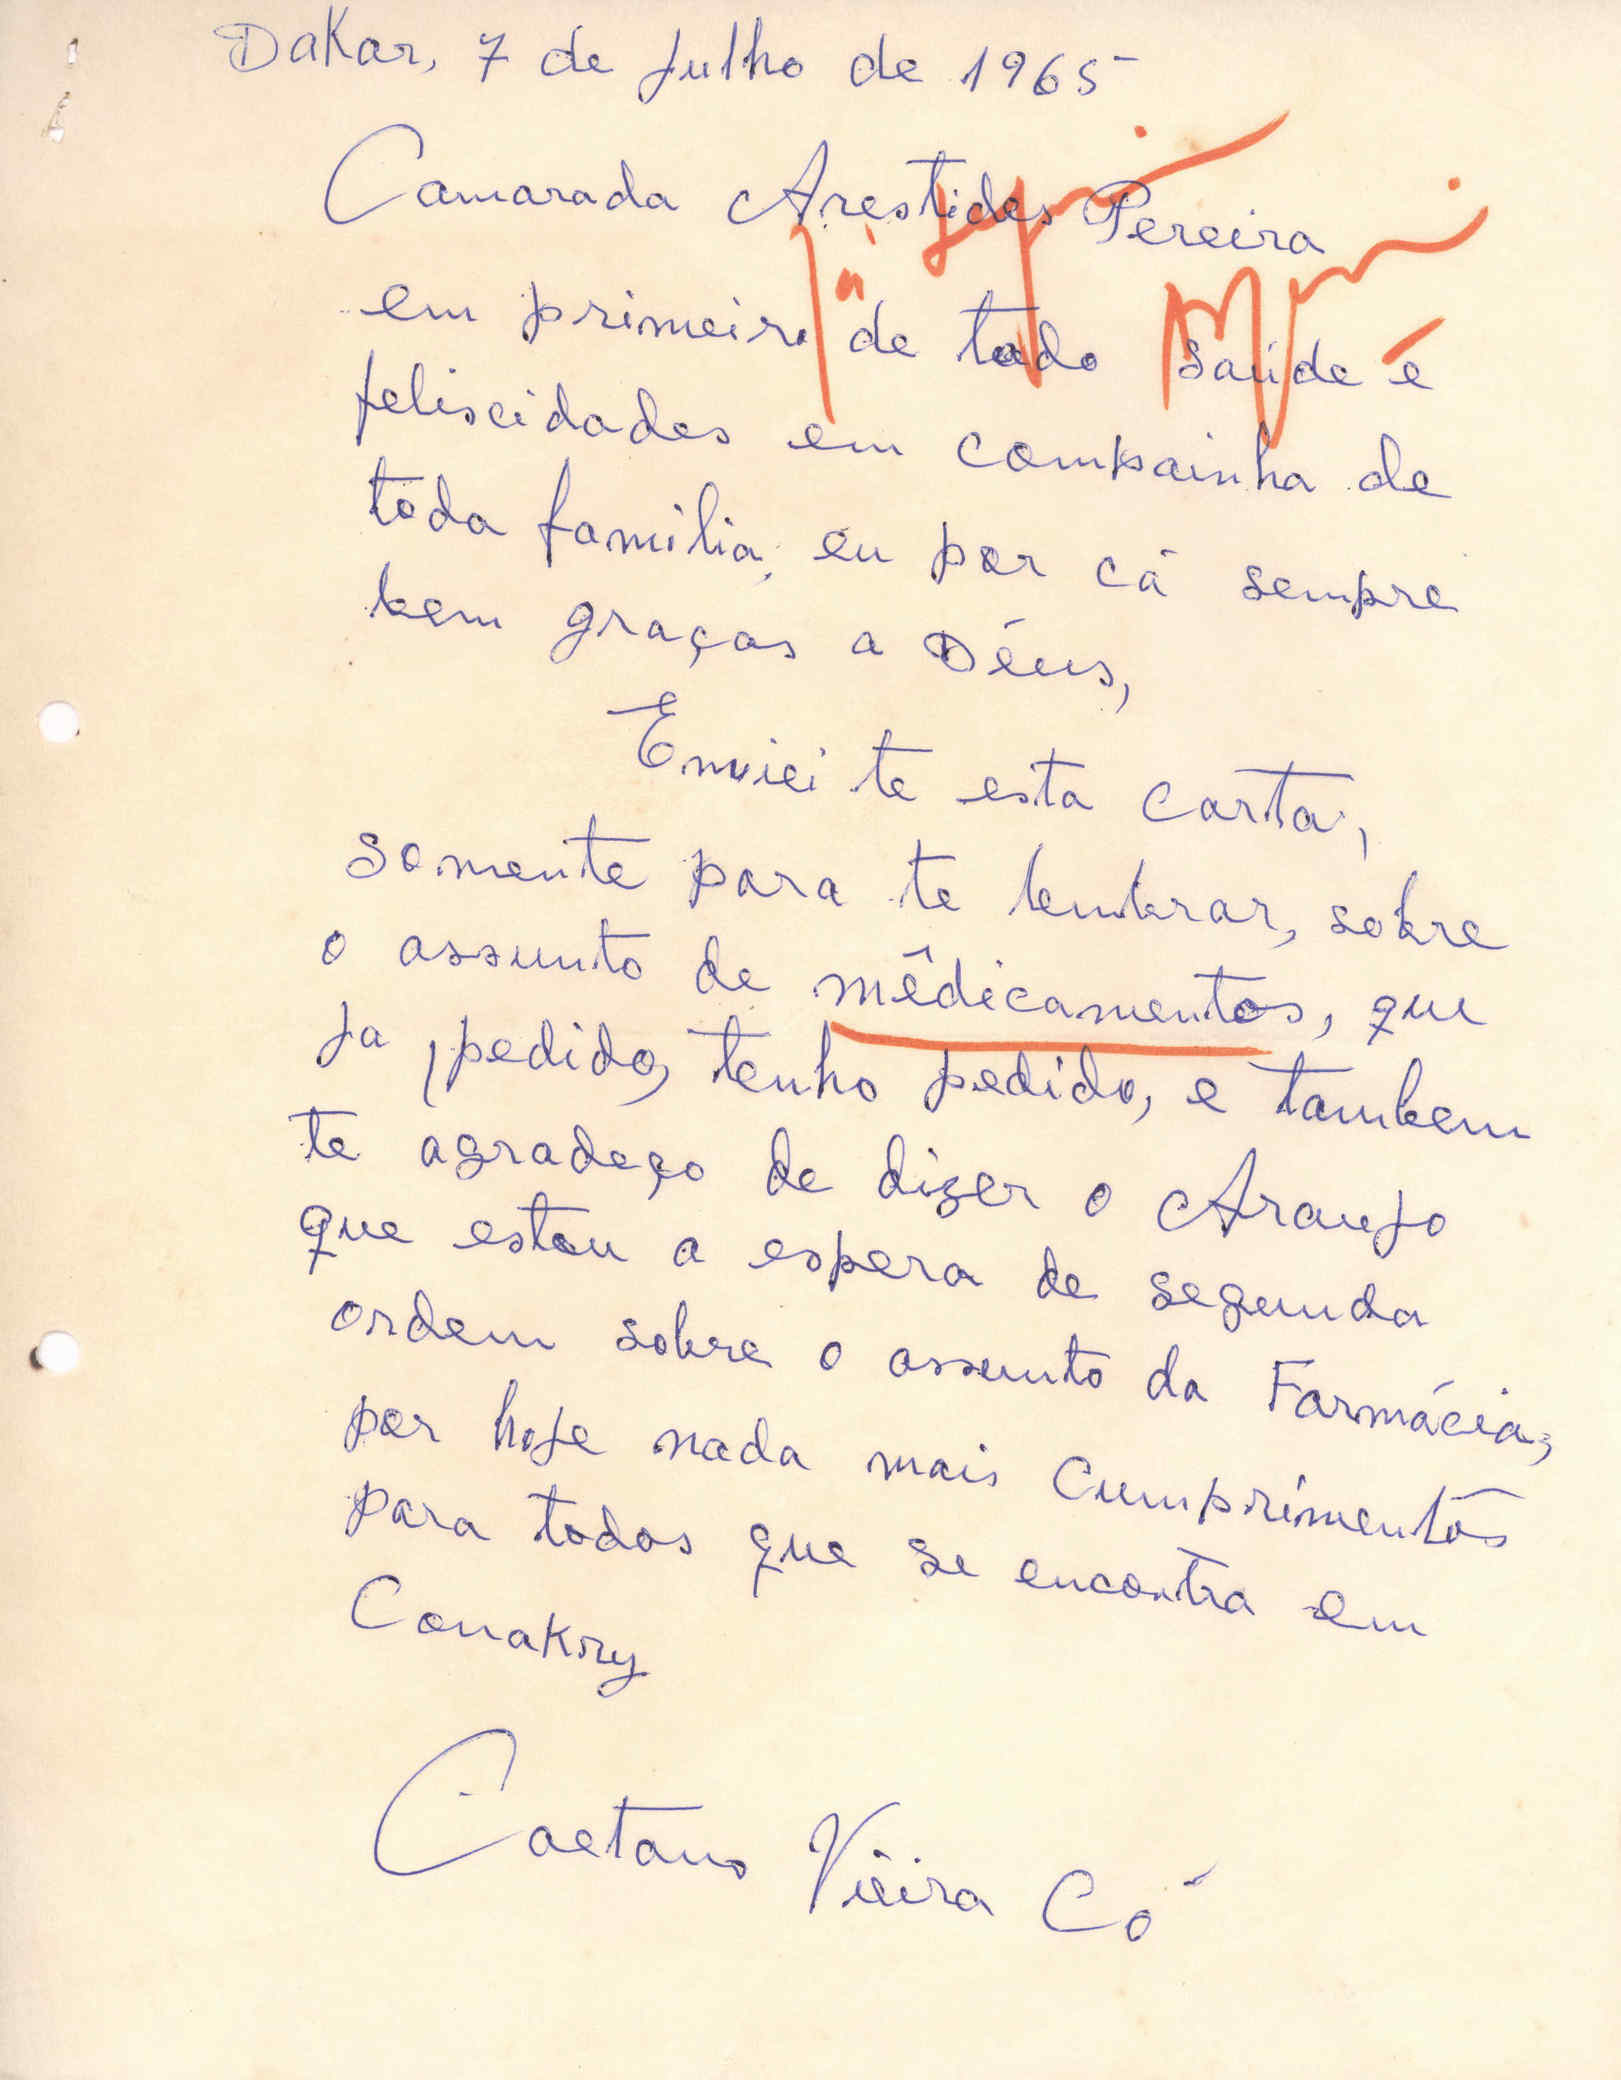 Dakar, 7 de Julho de 1965
Camarada Arestides Pereira
em primeiro de todo saúde e
feliscidades em compainha de
toda familia, eu por cá sempre
bem graças a Déus,
Enviei te esta carta,
somente para te lembrar, sobre
o assunto de mêdicamentos, que
Ja (pedido) tenho pedido, e tambem
te agradeço de dizer o Araujo
que estou a espera de segunda
ordem sobre o assunto da Farmácia,
por hoje nada mais Cumprimentos
para todos que se encontra em
Conakry
Caetano Vieira Có